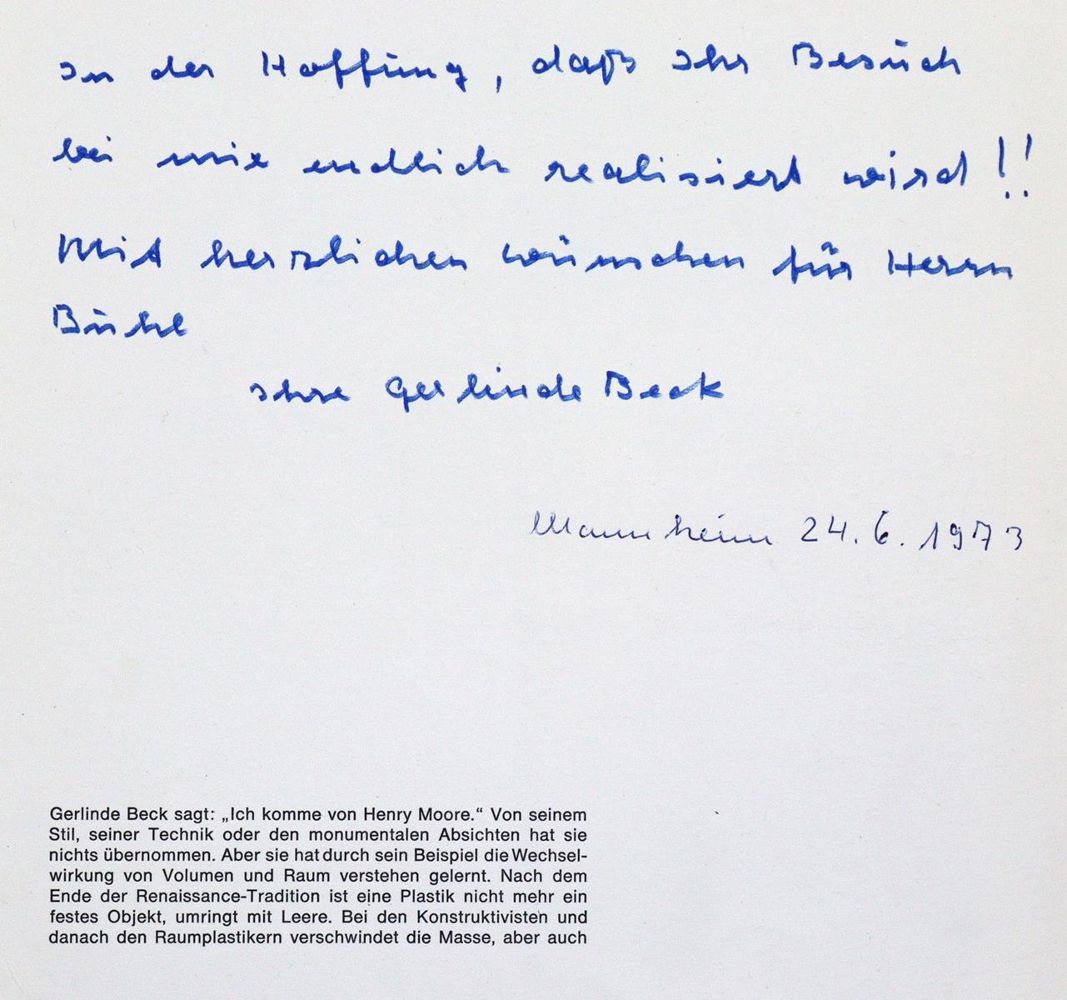 In der Hoffung, daß Ihr Besuch
bei mir endlich realisiert wird!!
Mit herzlichen Wünschen für Herrn
Bühl
Ihre Gerlinde Beck
Mannheim 24.6.1973
Gerlinde Beck sagt: „Ich komme von Henry Moore.“ Von seinem
Stil, seiner Technik oder den monumentalen Absichten hat sie
nichts übernommen. Aber sie hat durch sein Beispiel die Wechsel-
wirkung von Volumen und Raum verstehen gelernt. Nach dem
Ende der Renaissance-Tradition ist eine Plastik nicht mehr ein
festes Objekt, umringt mit Leere. Bei den Konstruktivisten und
danach den Raumplastikern verschwindet die Masse, aber auch